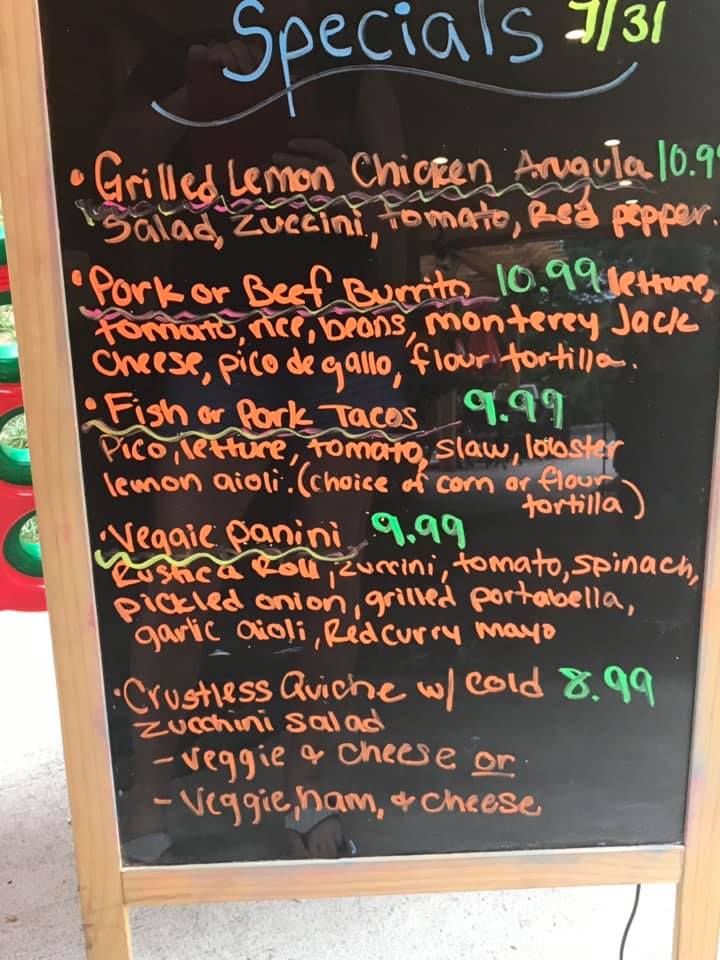 Specials 7/31
• Grilled Lemon Chicken Arugula 10.99
Salad, Zuccini, tomato, Red pepper.
• Pork or Beef Burrito 10.99 lettuce,
tomato, rice, beans, monterey Jack
cheese, pico de gallo, flour tortilla.
• Fish or Pork Tacos 9.99
Pico, lettuce, tomato, slaw, lobster
lemon aioli. (choice of corn or flour
tortilla)
• Veggie panini 9.99
Rustica Roll, zuccini, tomato, spinach,
pickled onion, grilled portabella,
garlic aioli, Red curry mayo
• Crustless Quiche w/ cold 8.99
zucchini salad
- veggie & cheese or
- Veggie, ham, & cheese